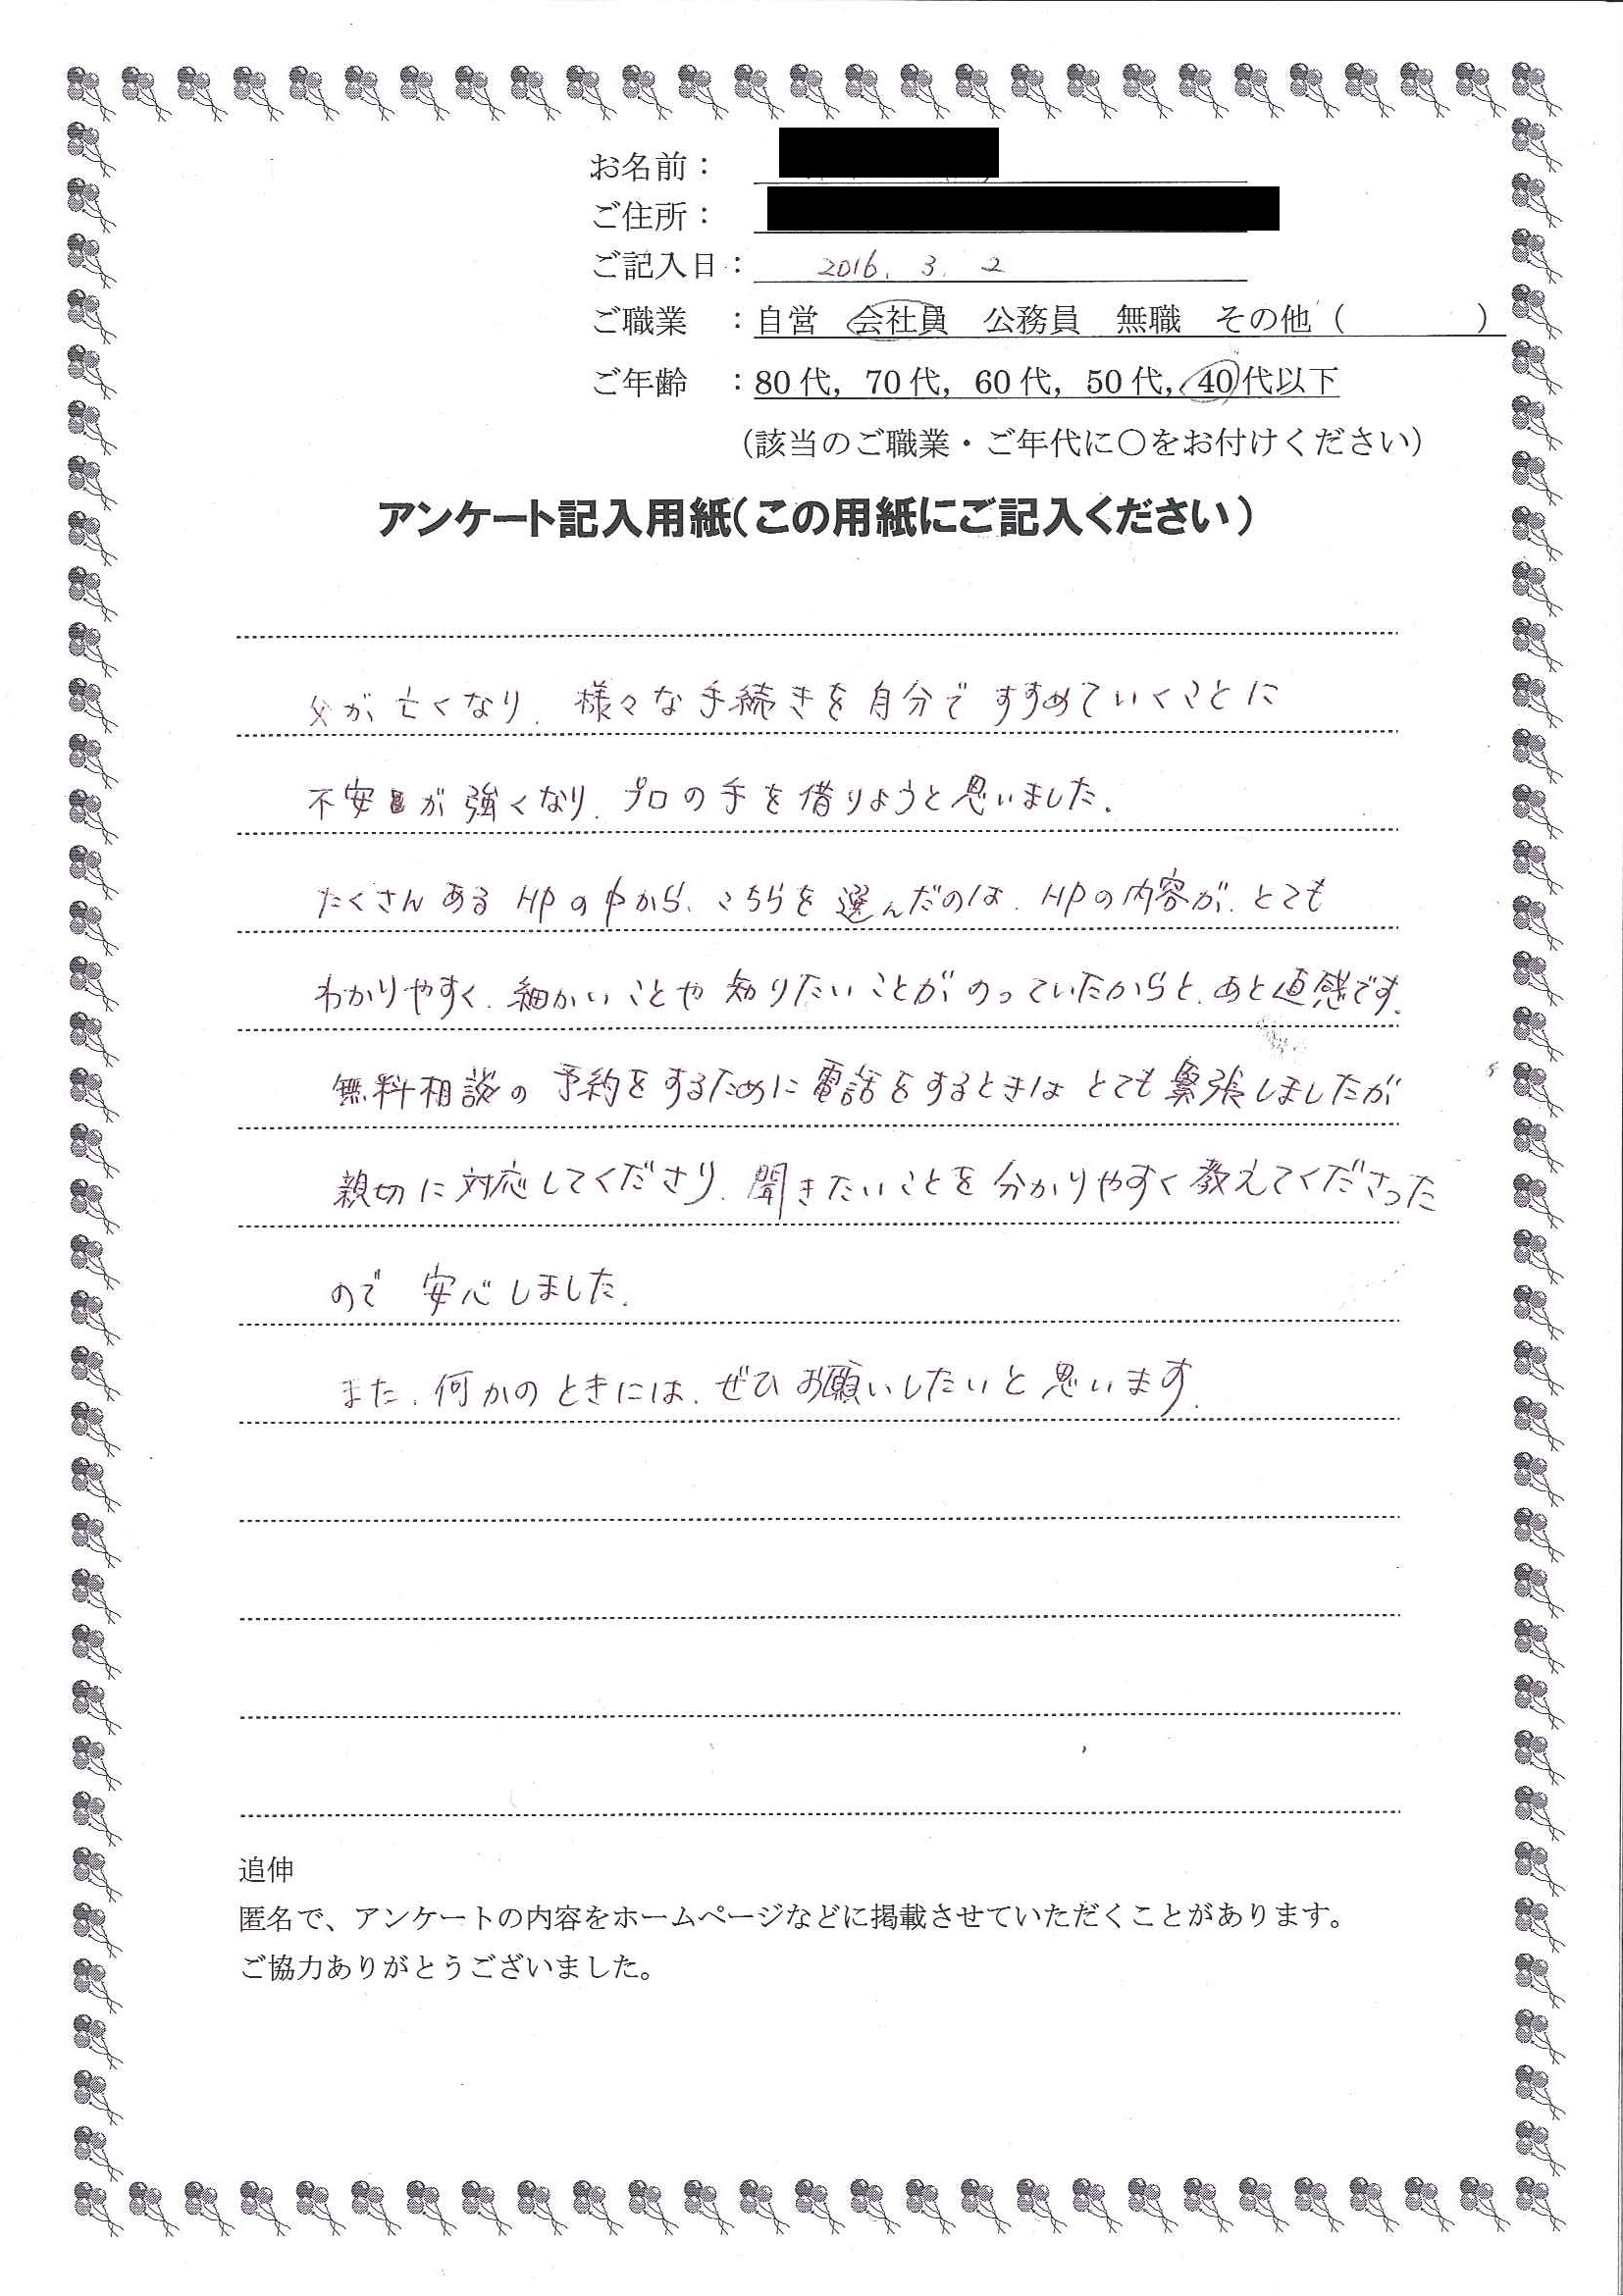 お名前：
ご住所：
ご記入日： 2016. 3. 2
ご職業　：自営　会社員　公務員　無職　その他（　　　　）
ご年齢　：80代，70代，60代，50代，40代以下
（該当のご職業・ご年代に〇をお付けください）
アンケート記入用紙（この用紙にご記入ください）
父が亡くなり、様々な手続きを自分ですすめていくことに
不安が強くなり、プロの手を借りようと思いました。
たくさんあるHPの中から、こちらを選んだのは、HPの内容が、とても
わかりやすく、細かいことや知りたいことがのっていたからと、あと直感です。
無料相談の予約をするために電話をするときはとても緊張しましたが
親切に対応してくださり、聞きたいことを分かりやすく教えてくださった
ので安心しました。
また、何かのときには、ぜひお願いしたいと思います。
追伸
匿名で、アンケートの内容をホームページなどに掲載させていただくことがあります。
ご協力ありがとうございました。